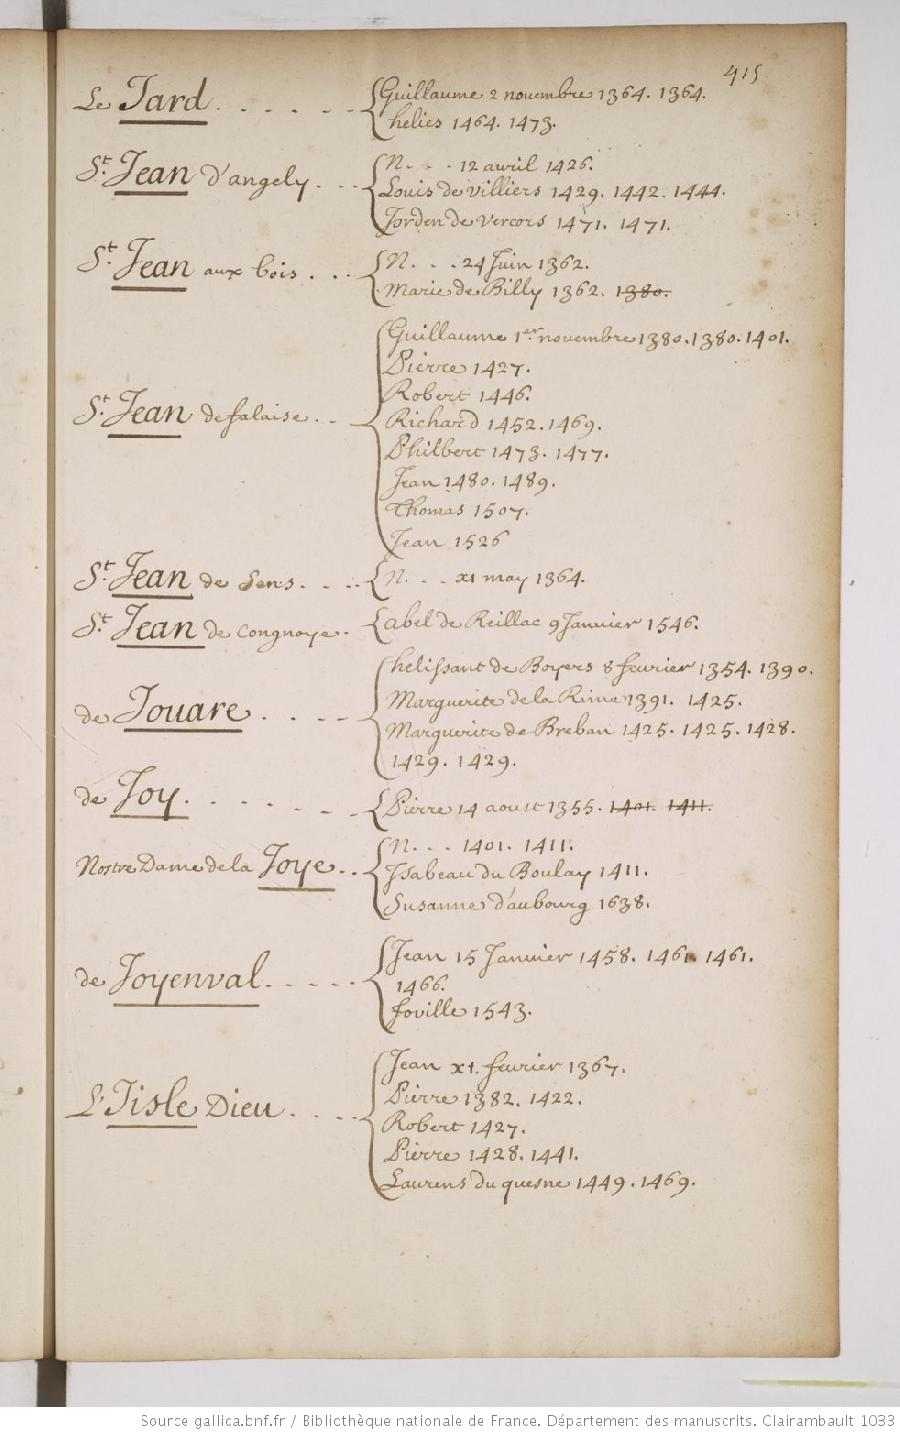 415.
Le Jard . . . . . . Guillaume 2 novembre 1364. 1364.
helies 1464. 1473.
St. Jean d'angely . . . N. . . . 12 avril 1426.
Louis de villiers 1429. 1442. 1444.
Jorden de vercors 1471. 1471.
St. Jean aux bois . . . N. . . . 24 Juin 1362.
Marie de Billy 1362. 1380.
Guillaume 1er. novembre 1380. 1380. 1401.
Pierre 1427.
Robert 1446.
St. Jean de falaise . . Richard 1452. 1469.
Philbert 1473. 1477.
Jean 1480. 1489.
Thomas 1507.
Jean 1526
St. Jean de Sens . . . . N. . . . xi may 1364.
St. Jean de Congnoye . abel de Reillac 9 Janvier 1546.
helissant de Boyers 8 fevrier 1354. 1390.
de Jouare . . . . Marguerite de la Rime 1391. 1425.
Marguerite de Breban 1425. 1425. 1428.
1429. 1429.
de Joy . . . . . . Pierre 14 aoust 1355. 1401. 1411.
N. . . . 1401. 1411.
Nostre Dame de la Joye . . Isabeau du Boulay 1411.
Susanne d'aubourg 1638.
Jean 15 Janvier 1458. 1461. 1461.
de Joyenval . . . . . 1466.
foville 1543.
Jean xi. fevrier 1367.
Pierre 1382. 1422.
L'Jisle Dieu . . . . Robert 1427.
Pierre 1428. 1441.
Laurens du quesne 1449. 1469.
Source gallica.bnf.fr / Bibliothèque nationale de France. Département des manuscrits. Clairambault 1033